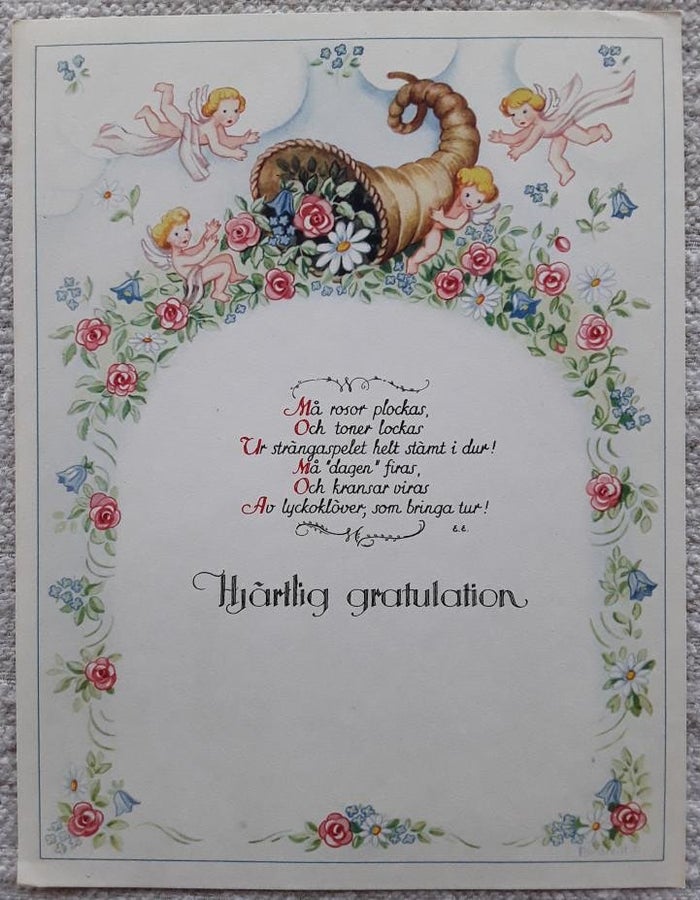 Må rosor plockas,
Och toner lockas
Ur strängaspelet helt stämt i dur!
Må "dagen" firas,
Och kransar viras
Av lyckoklöver, som bringa tur!
E.E.
Hjärtlig gratulation